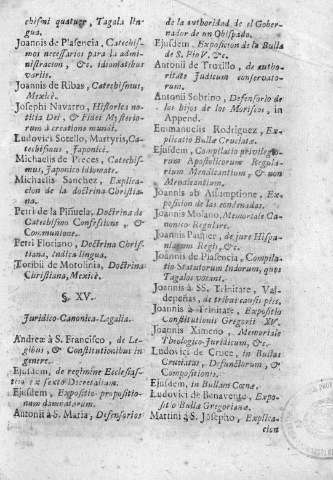 chismi quatuor, Tagala lin-
gua.
Joannis de Plasencia, Catechis-
mos necessarios para la admi-
nistracion, &c. idiomatibus
variis.
Joannis de Ribas, Catechismus,
Mexicè.
Josephi Navarro, Histories no-
titia Dei, & Fidei Mysterio-
rum à creatione mundi.
Ludovici Sotello, Martyris, Ca-
techismus, Japonicè.
Michaelis de Preces, Catechis-
mus, Japonico idiomate.
Michaelis Sanchez, Explica-
cion de la doctrina Christia-
na.
Petri de la Piñuela, Doctrina de
Catechismo Confessione, &
Communione.
Petri Floriano, Doctrina Chris-
tiana, Indica lingua.
Toribii de Motolinia, Doctrina
Christiana, Mexicè.
§. XV.
Juridico-Canonica-Legalia.
Andreæ à S. Francisco, de Le-
gibus, & Constitutionibus in
genere.
Ejusdem, de regimine Ecclesias-
tico ex sexto Decretalium.
Ejusdem, Expositio propositio-
num damnatarum.
Antonii à S. Maria, Defensorios
de la authoridad de el Gober-
nador de un Obispado.
Ejusdem, Exposicion de la Bulla
de S. Pio V. &c.
Antonii de Truxillo, de autho-
ritate Judicum conservato-
rum.
Antonii Sobrino, Defensorio de
los hijos de los Moriscos, in
Append.
Emmanuelis Rodriguez, Ex-
plicatio Bullæ Cruciatæ.
Ejusdem, Compilatio privilegio-
rum Apostolicorum Regula-
rium Mendicantium, & non
Mendicantium.
Joannis ab Assumptione, Ex-
posicion de las condenadas.
Joannis Molano, Memoriale Ca-
nonico-Regulare.
Joannis Pastier, de jure Hispa-
niarum Regis, &c.
Joannis de Plasencia, Compila-
tio Statutorum Indorum, quos
Tagalos vocant.
Joannis à SS. Trinitate, Val-
depeñas, de tribus causis piis.
Joannis à Trinitate, Expositio
Constitutionis Gregorii XV.
Joannis Ximeno, Memoriale
Theologico-Juridicum, &c.
Ludovici de Cruce, in Bullas
Cruciatæ, Defunctorum, &
Compositionis.
Ejusdem, in Bullam Cœnæ.
Ludovici de Benavente, Expo-
sitio Bullæ Gregorianæ.
Martini à S. Josepho, Explica-
cion